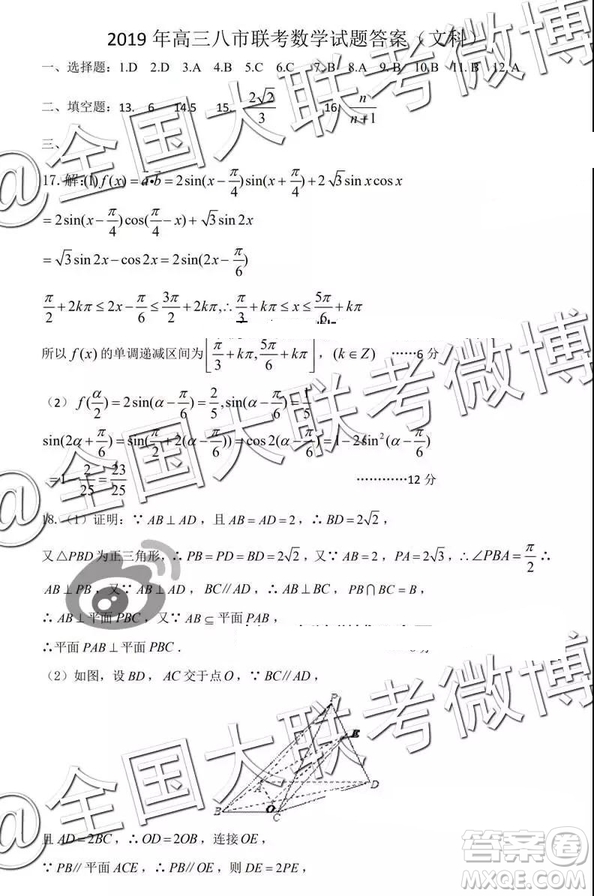 2019 年高三八市联考数学试题答案（文科）
一、选择题：1.D 2.D 3.A 4.B 5.C 6.C 7.B 8.A 9.B 10.B 11.B 12.A
二、填空题：13. 6 14.5 15. 2√2/3 16. n/(n+1)
三、
17. 解:(1) f(x) = a•b = 2sin(x − π/4)sin(x + π/4) + 2√3 sin x cos x
= 2sin(x − π/4)cos(x − π/4) + √3 sin 2x
= √3 sin 2x − cos 2x = 2sin(2x − π/6)
π/2 + 2kπ ≤ 2x − π/6 ≤ 3π/2 + 2kπ, ∴ π/3 + kπ ≤ x ≤ 5π/6 + kπ
所以 f(x) 的单调递减区间为 [π/3 + kπ, 5π/6 + kπ]，(k ∈ Z) ……6 分
（2） f(α/2) = 2sin(α − π/6) = 2/5, sin(α − π/6) = 1/5
sin(2α + π/6) = sin(π/2 + 2(α − π/6)) = cos 2(α − π/6) = 1 − 2sin²(α − π/6)
= 1 − 2/25 = 23/25 …………12 分
18.（1）证明：∵ AB ⊥ AD，且 AB = AD = 2，∴ BD = 2√2，
又 △PBD 为正三角形，∴ PB = PD = BD = 2√2，又∵ AB = 2，PA = 2√3，∴ ∠PBA = π/2 ∴
AB ⊥ PB，又∵ AB ⊥ AD，BC // AD，∴ AB ⊥ BC，PB ∩ BC = B，
∴ AB ⊥ 平面 PBC，又∵ AB ⊆ 平面 PAB，
∴平面 PAB ⊥ 平面 PBC．
（2）如图，设 BD，AC 交于点 O，∵ BC // AD，
P
E
D
B
O
C
且 AD = 2BC，∴ OD = 2OB，连接 OE，
∵ PB // 平面 ACE，∴ PB // OE，则 DE = 2PE，
@全国大联考微博
@全国大联考微博
@全国大联考微博
答案圈
MXQE.COM